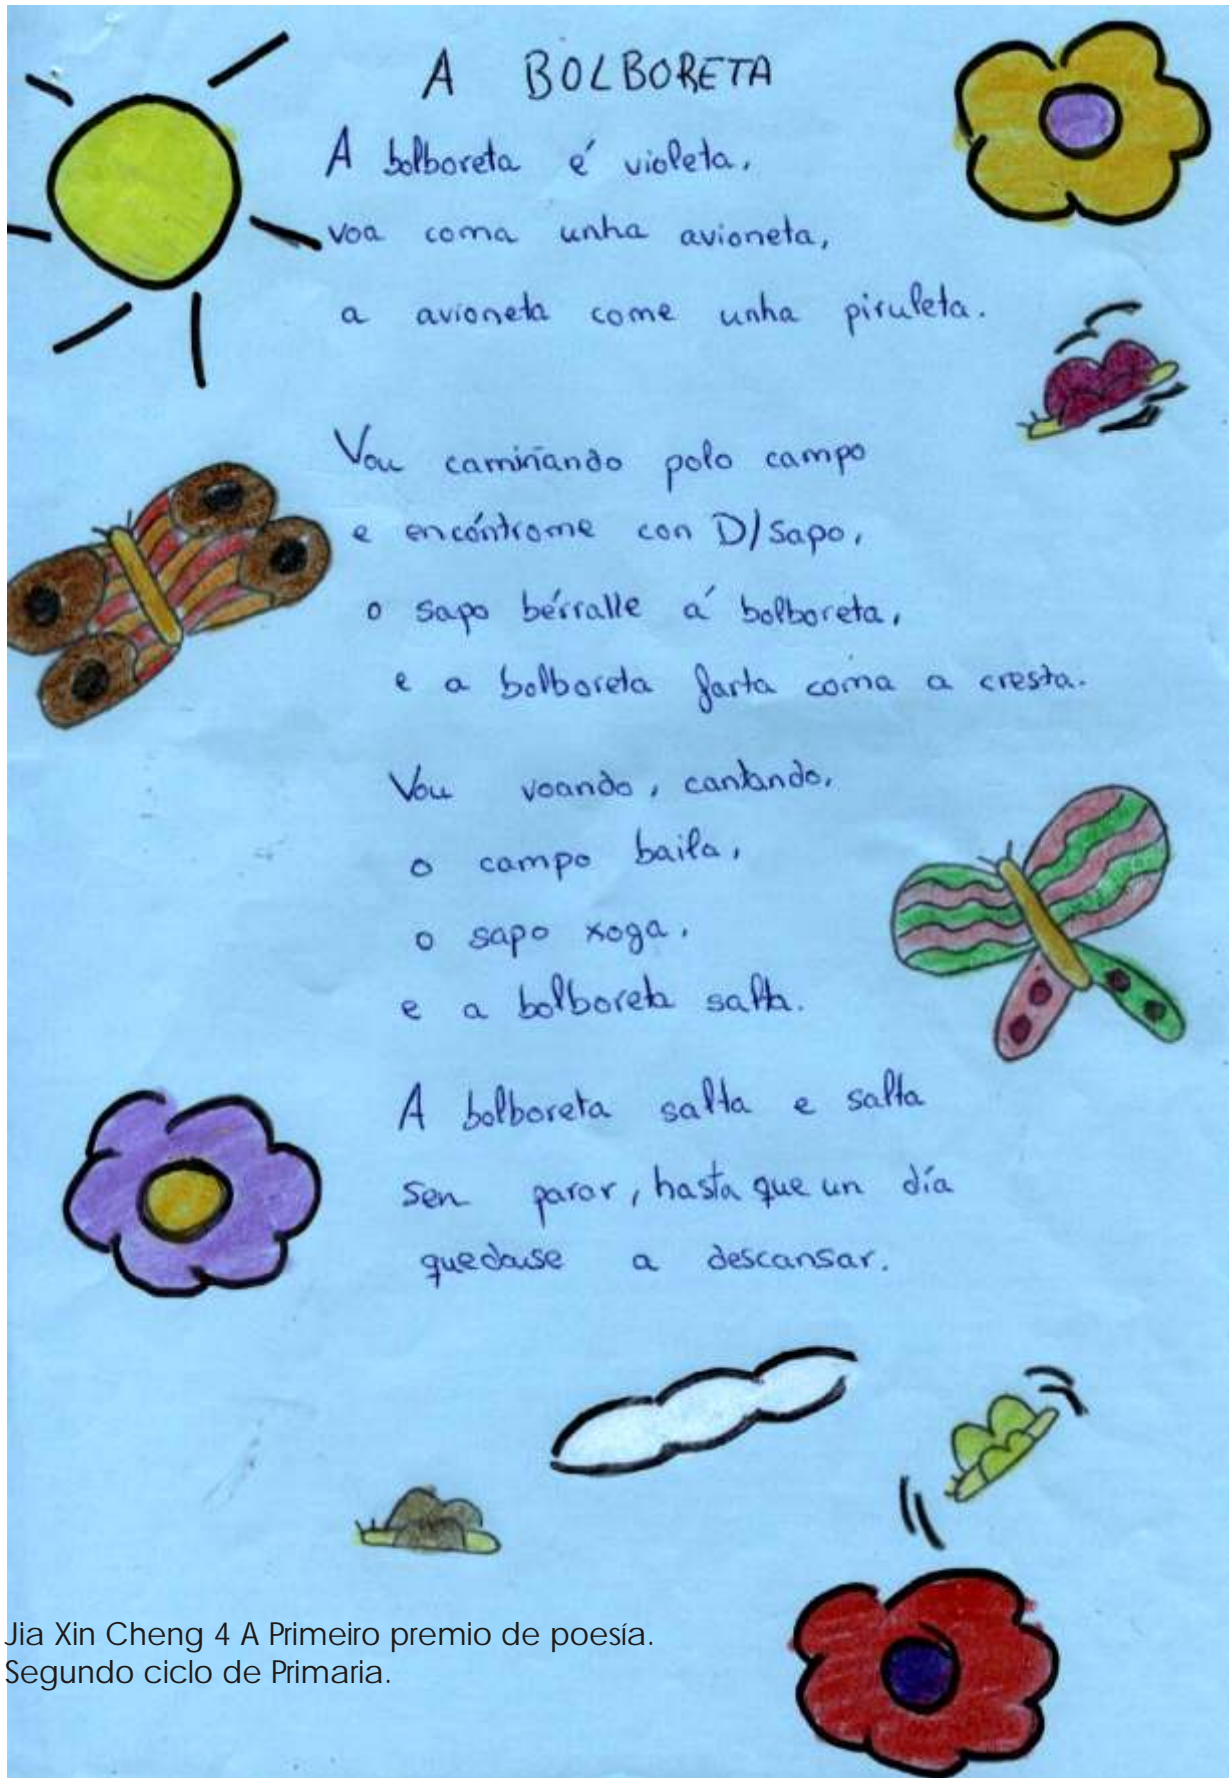 A BOLBORETA
A bolboreta é violeta,
voa coma unha avioneta,
a avioneta come unha piruleta.
Vou camiñando polo campo
e encóntrome con D/Sapo,
o sapo bérralle á bolboreta,
e a bolboreta farta coma a cresta.
Vou voando, cantando,
o campo baila,
o sapo xoga,
e a bolboreta salta.
A bolboreta salta e salta
sen parar, hasta que un día
quedouse a descansar.
Jia Xin Cheng 4 A Primeiro premio de poesía.
Segundo ciclo de Primaria.